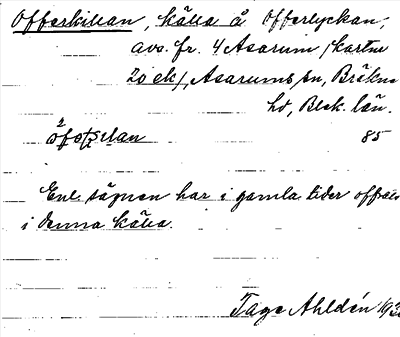 Offerkillan, källa å Offerlyckan,
avs. fr. 4 Asarum /kartan
20 ek/, Asarums sn, Bräkne
hd, Blek. län.
85
Enl. sägnen har i gamla tider offrats
i denna källa.
Tage Ahldén 193